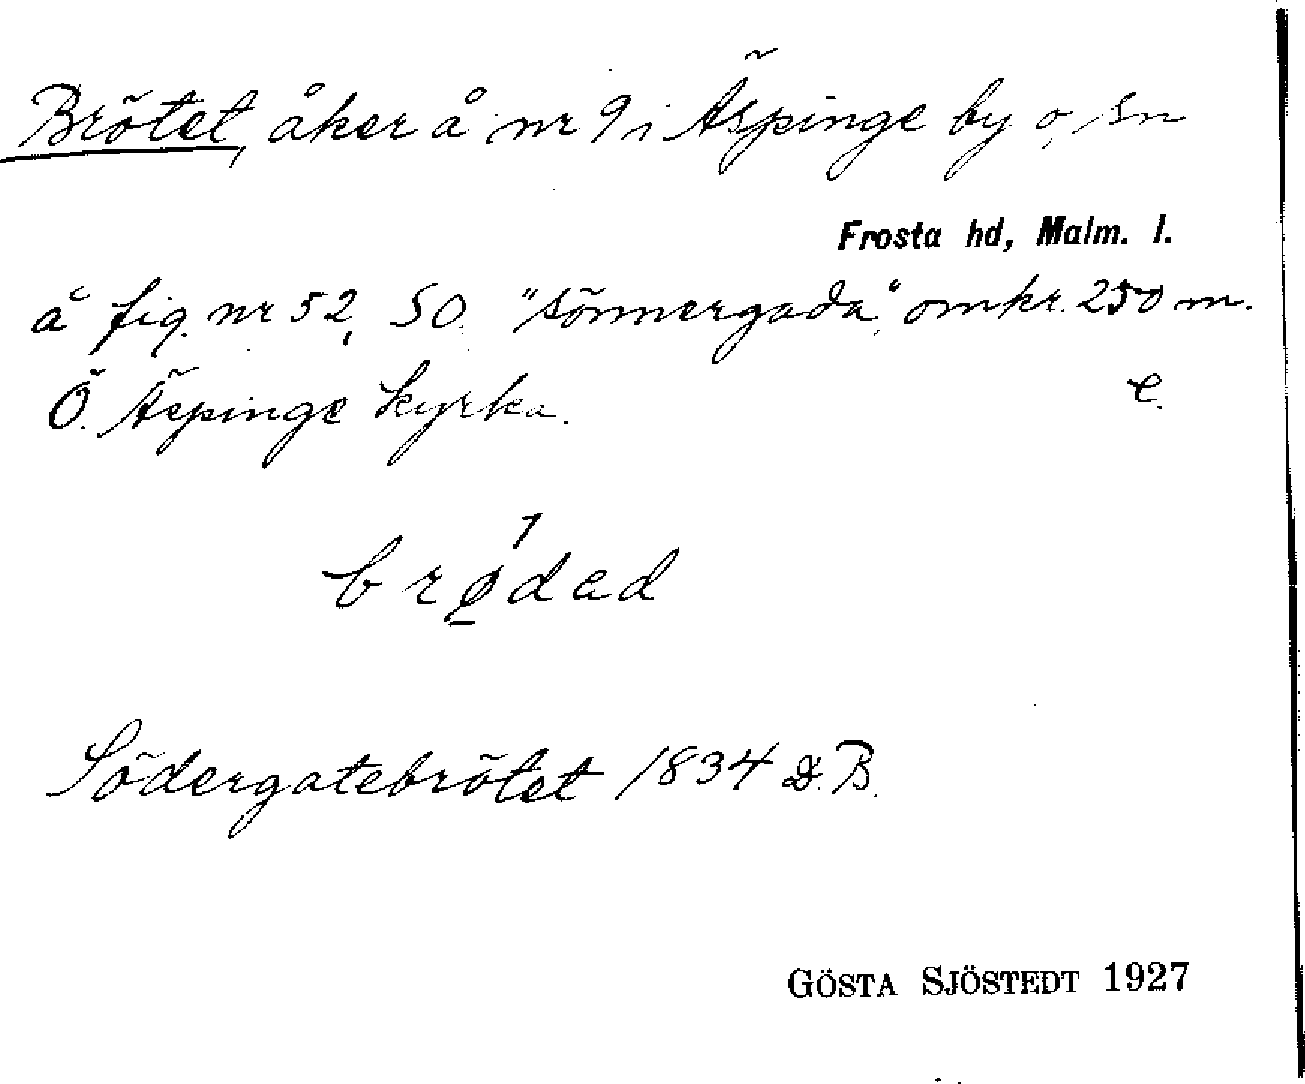 Brötet, åker å nr 9 i Äspinge by o. sn
Frosta hd, Malm. l.
å fig. nr 52, SO. "sönnergada", omkr. 250 m.
Ö. Äspinge kyrka. e.
brǿ̱dad
Södergatebrötet 1834 D.B.
GÖSTA SJÖSTEDT 1927